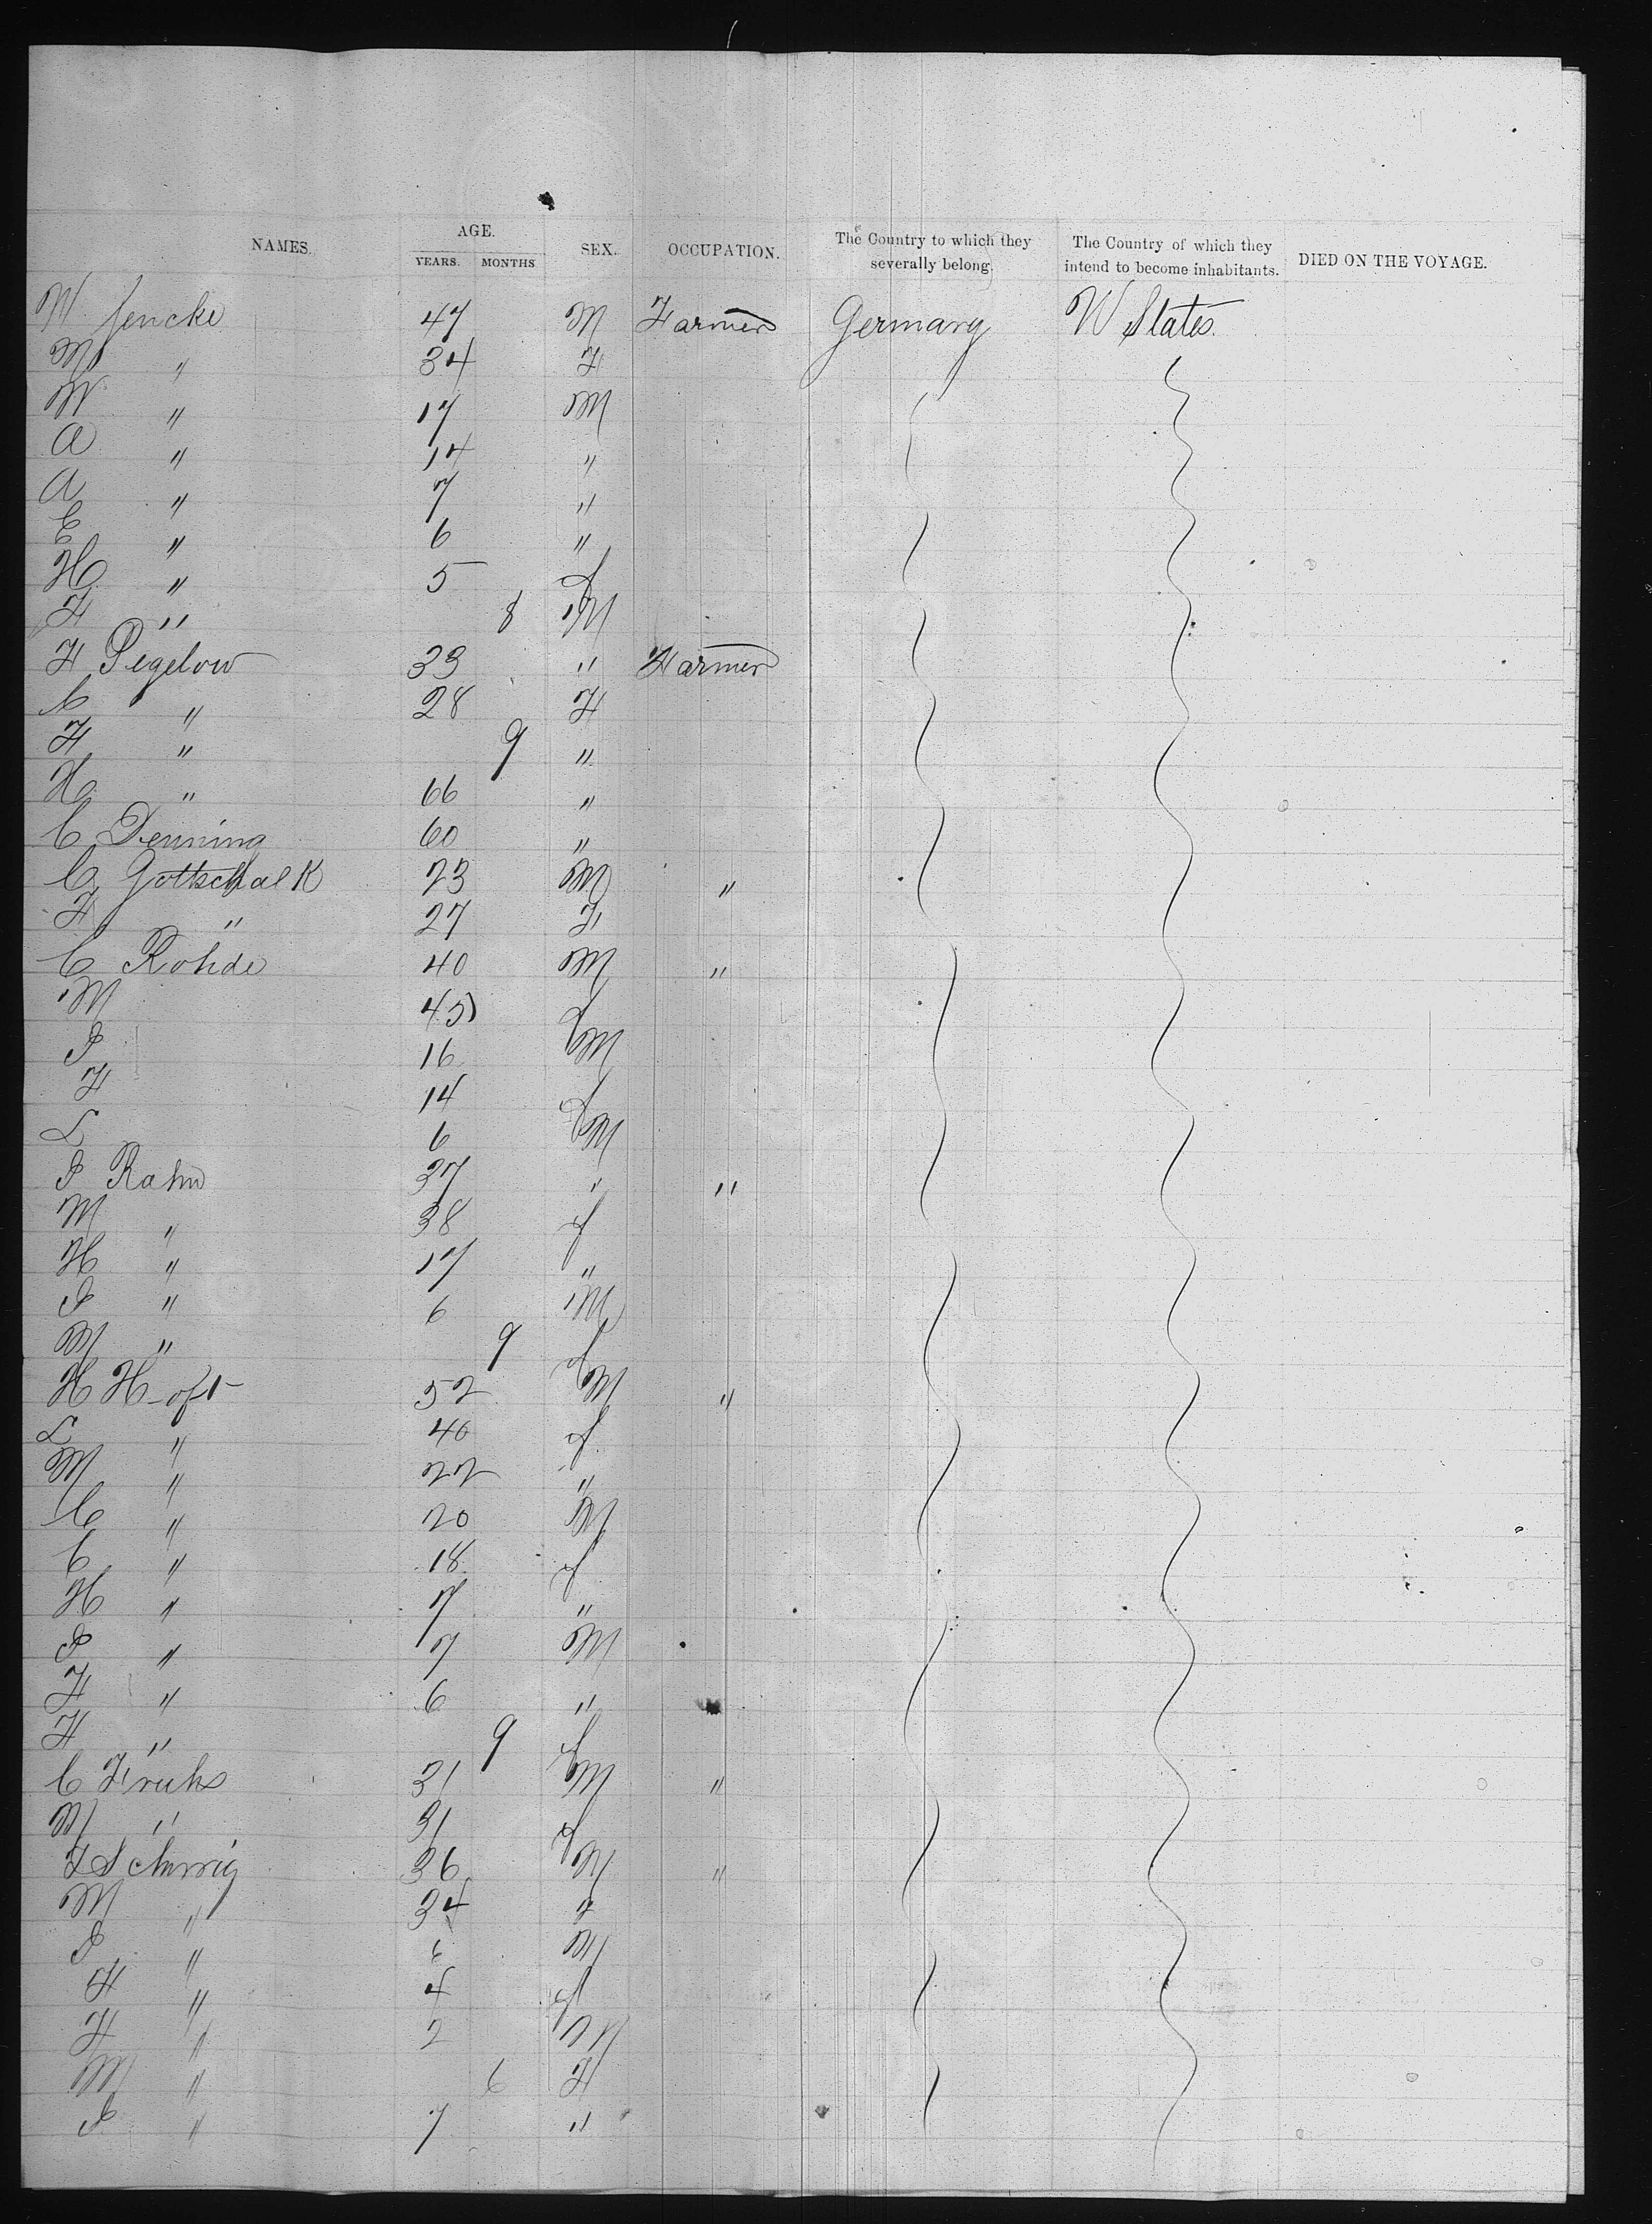 NAMES. AGE. YEARS. MONTHS SEX. OCCUPATION. The Country to which they severally belong. The Country of which they intend to become inhabitants. DIED ON THE VOYAGE.
W Jencke 47 M Farmer Germany U States.
M " 34 F
W " 17 M
A " 14 "
A " 7 "
E " 6 "
H " 5 f
F " 8 M
F Pegelow 33 " Farmer
C " 28 F
F " 9 "
H " 66 "
C Denning 60 "
C Gottschalk 23 M "
F " 27 F
C Rohde 40 M "
M 45 f
J 16 M
F 14 f
L 6 M
J Rahn 37 " "
M " 38 f
H " 17 "
J " 6 M
M " 9 f
H Hoft 52 M "
L " 40 f
M " 22 "
C " 20 M
C " 18 f
H " 7 "
J " 7 M
F " 6 "
F " 9 f
C Fruhs 31 M "
M " 31 f
F 36 M "
M " 34 f
J " 6 M
F " 4 f
F " 2 M
M " 6 F
J " 7 "